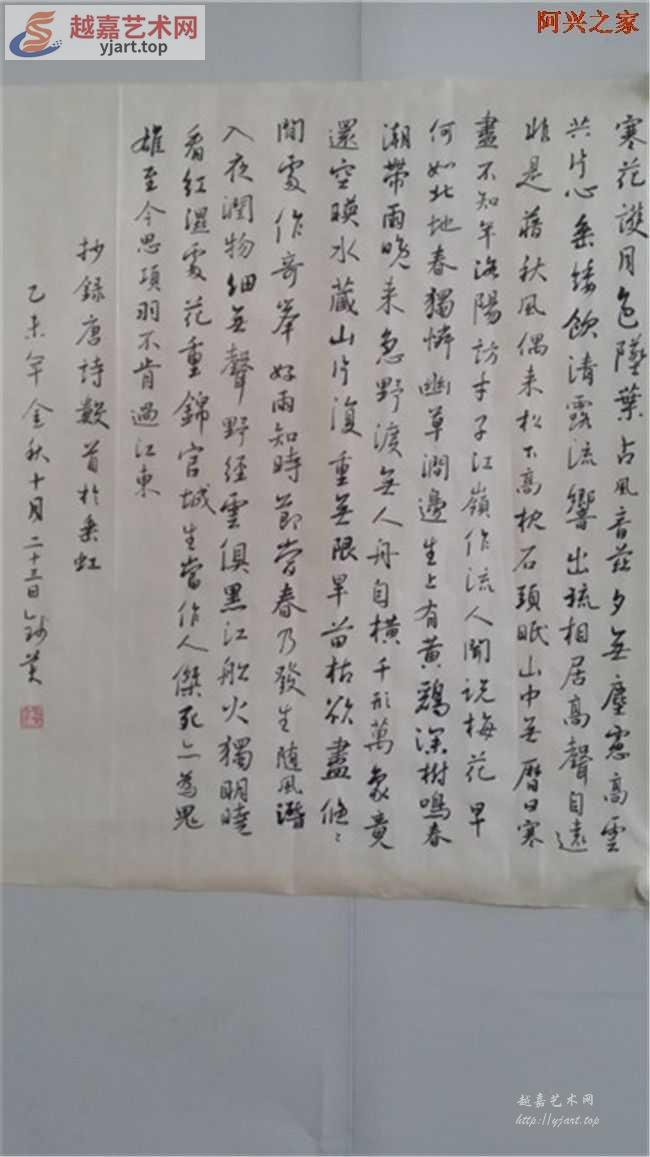 越嘉艺术网
yjart.top
阿兴之家
寒花護月色墜葉占風音茲夕無塵慮高雲
共片心垂緌飲清露流響出疏桐居高聲自遠
非是藉秋風偶来松下高枕石頭眠山中無曆日寒
盡不知年洛陽訪才子江嶺作流人聞説梅花早
何如北地春獨憐幽草澗邊生上有黃鸝深樹鳴春
潮帶雨晚来急野渡無人舟自橫千形萬象竟
還空暎水藏山片復重無限旱苗枯欲盡悠〻
閒處作奇峯好雨知時節當春乃發生随風潛
入夜潤物細無聲野徑雲俱黑江船火獨明曉
看紅濕處花重錦官城生當作人傑死亦為鬼
雄至今思項羽不肯過江東
抄録唐詩數首於垂虹
乙未年金秋十月二十三日
越嘉艺术网
http://yjart.top